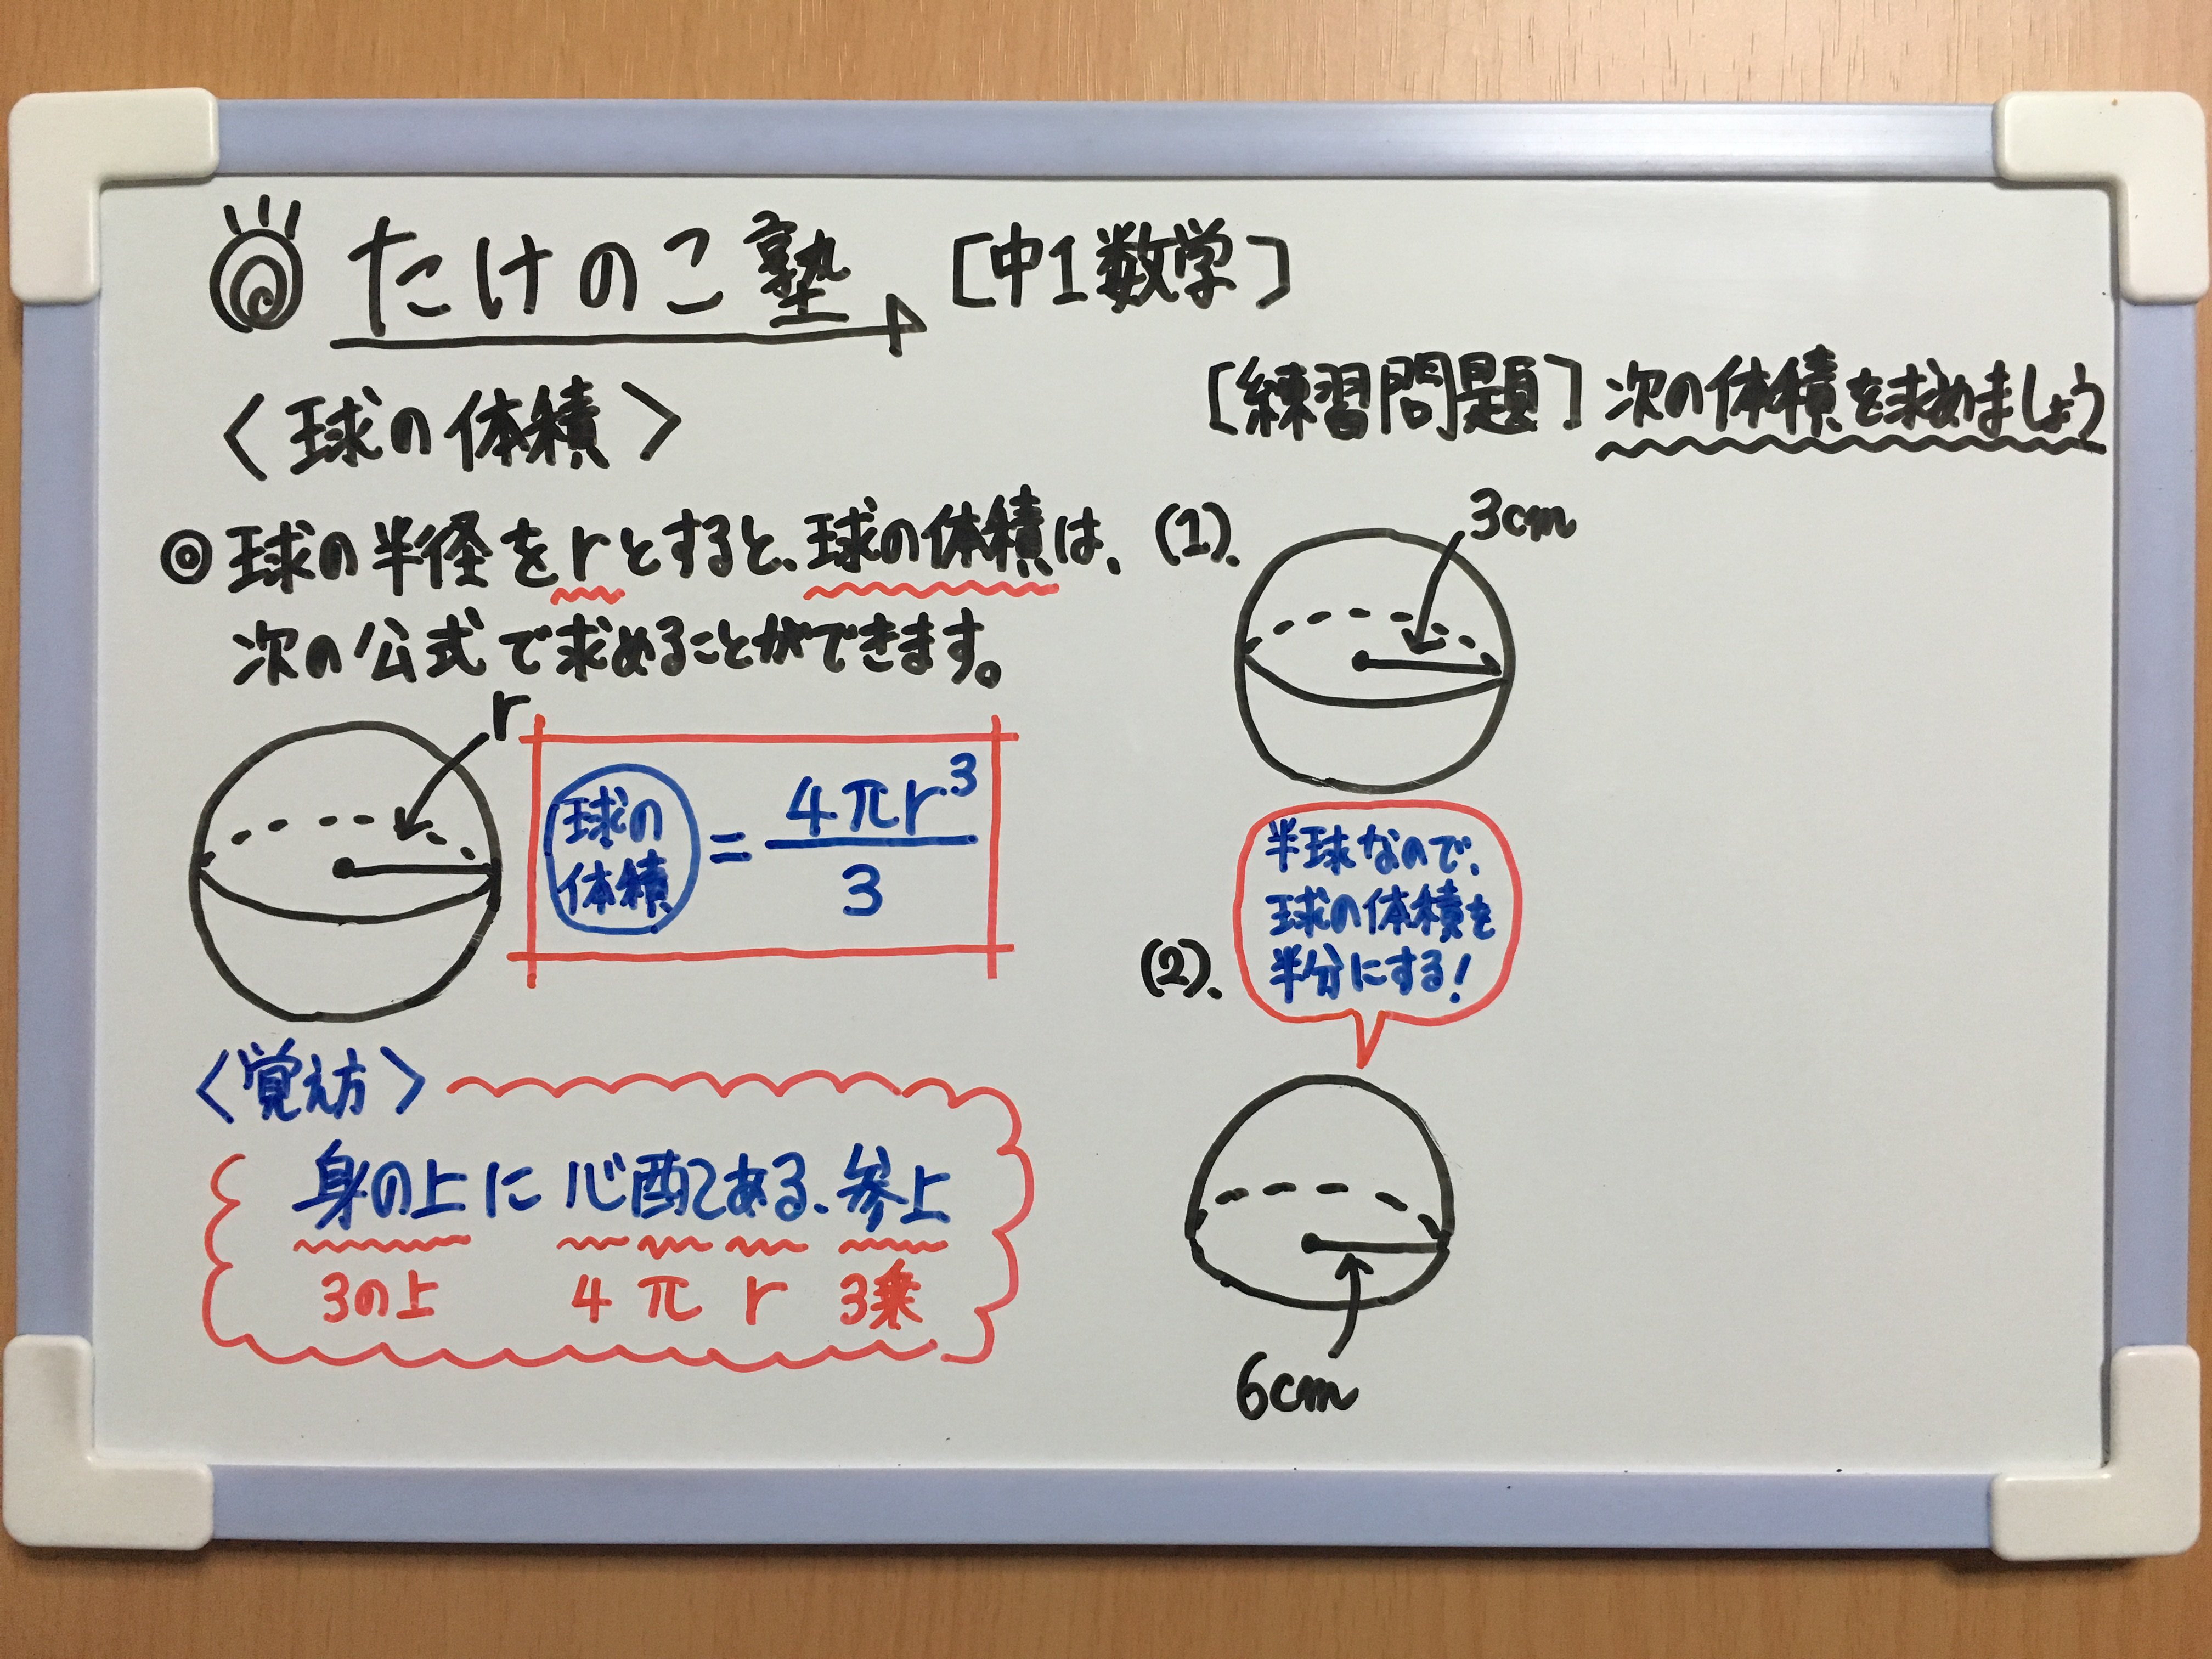 たけのこ塾 [中1数学]
〈球の体積〉
◎球の半径をrとすると、球の体積は、
次の公式で求めることができます。
r
球の
体積
= 4πr³
3
〈覚え方〉
身の上に 心配てある、参上
3の上 4 π r 3乗
[練習問題] 次の体積を求めましょう
(1).
3cm
(2).
半球なので、
球の体積を
半分にする!
6cm